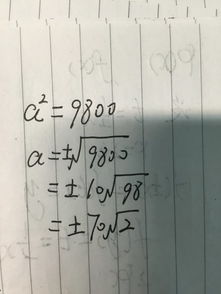 a² = 9800
a = ±√9800
= ±10√98
= ±70√2